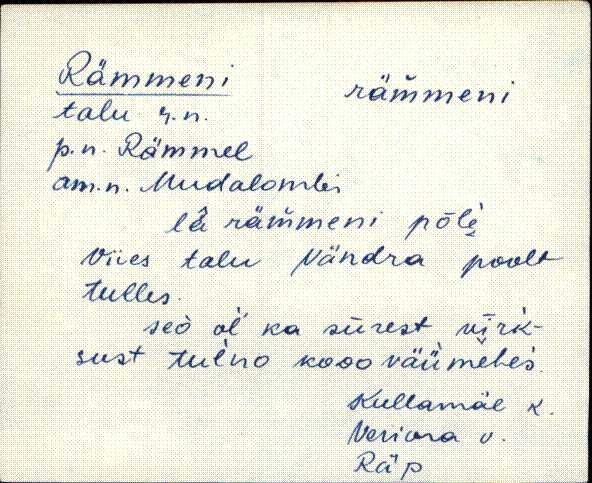 Rämmeni räm̆meni
talu r.n.
p.n. Rämmel
am.n. Mudalombi
lä̂ räm̆meni põlè
Viies talu Vändra poolt
tulles.
seò ol̀ ka sūrest vīrk-
sust tuĺno kooo väümehès.
Kullamäe k.
Veriora v.
Räp